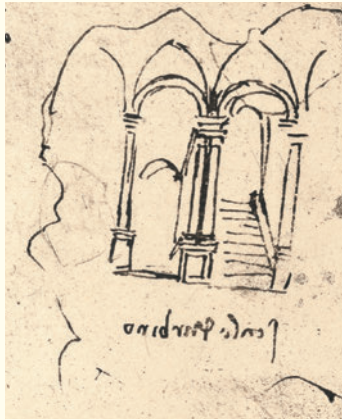 scale durbino